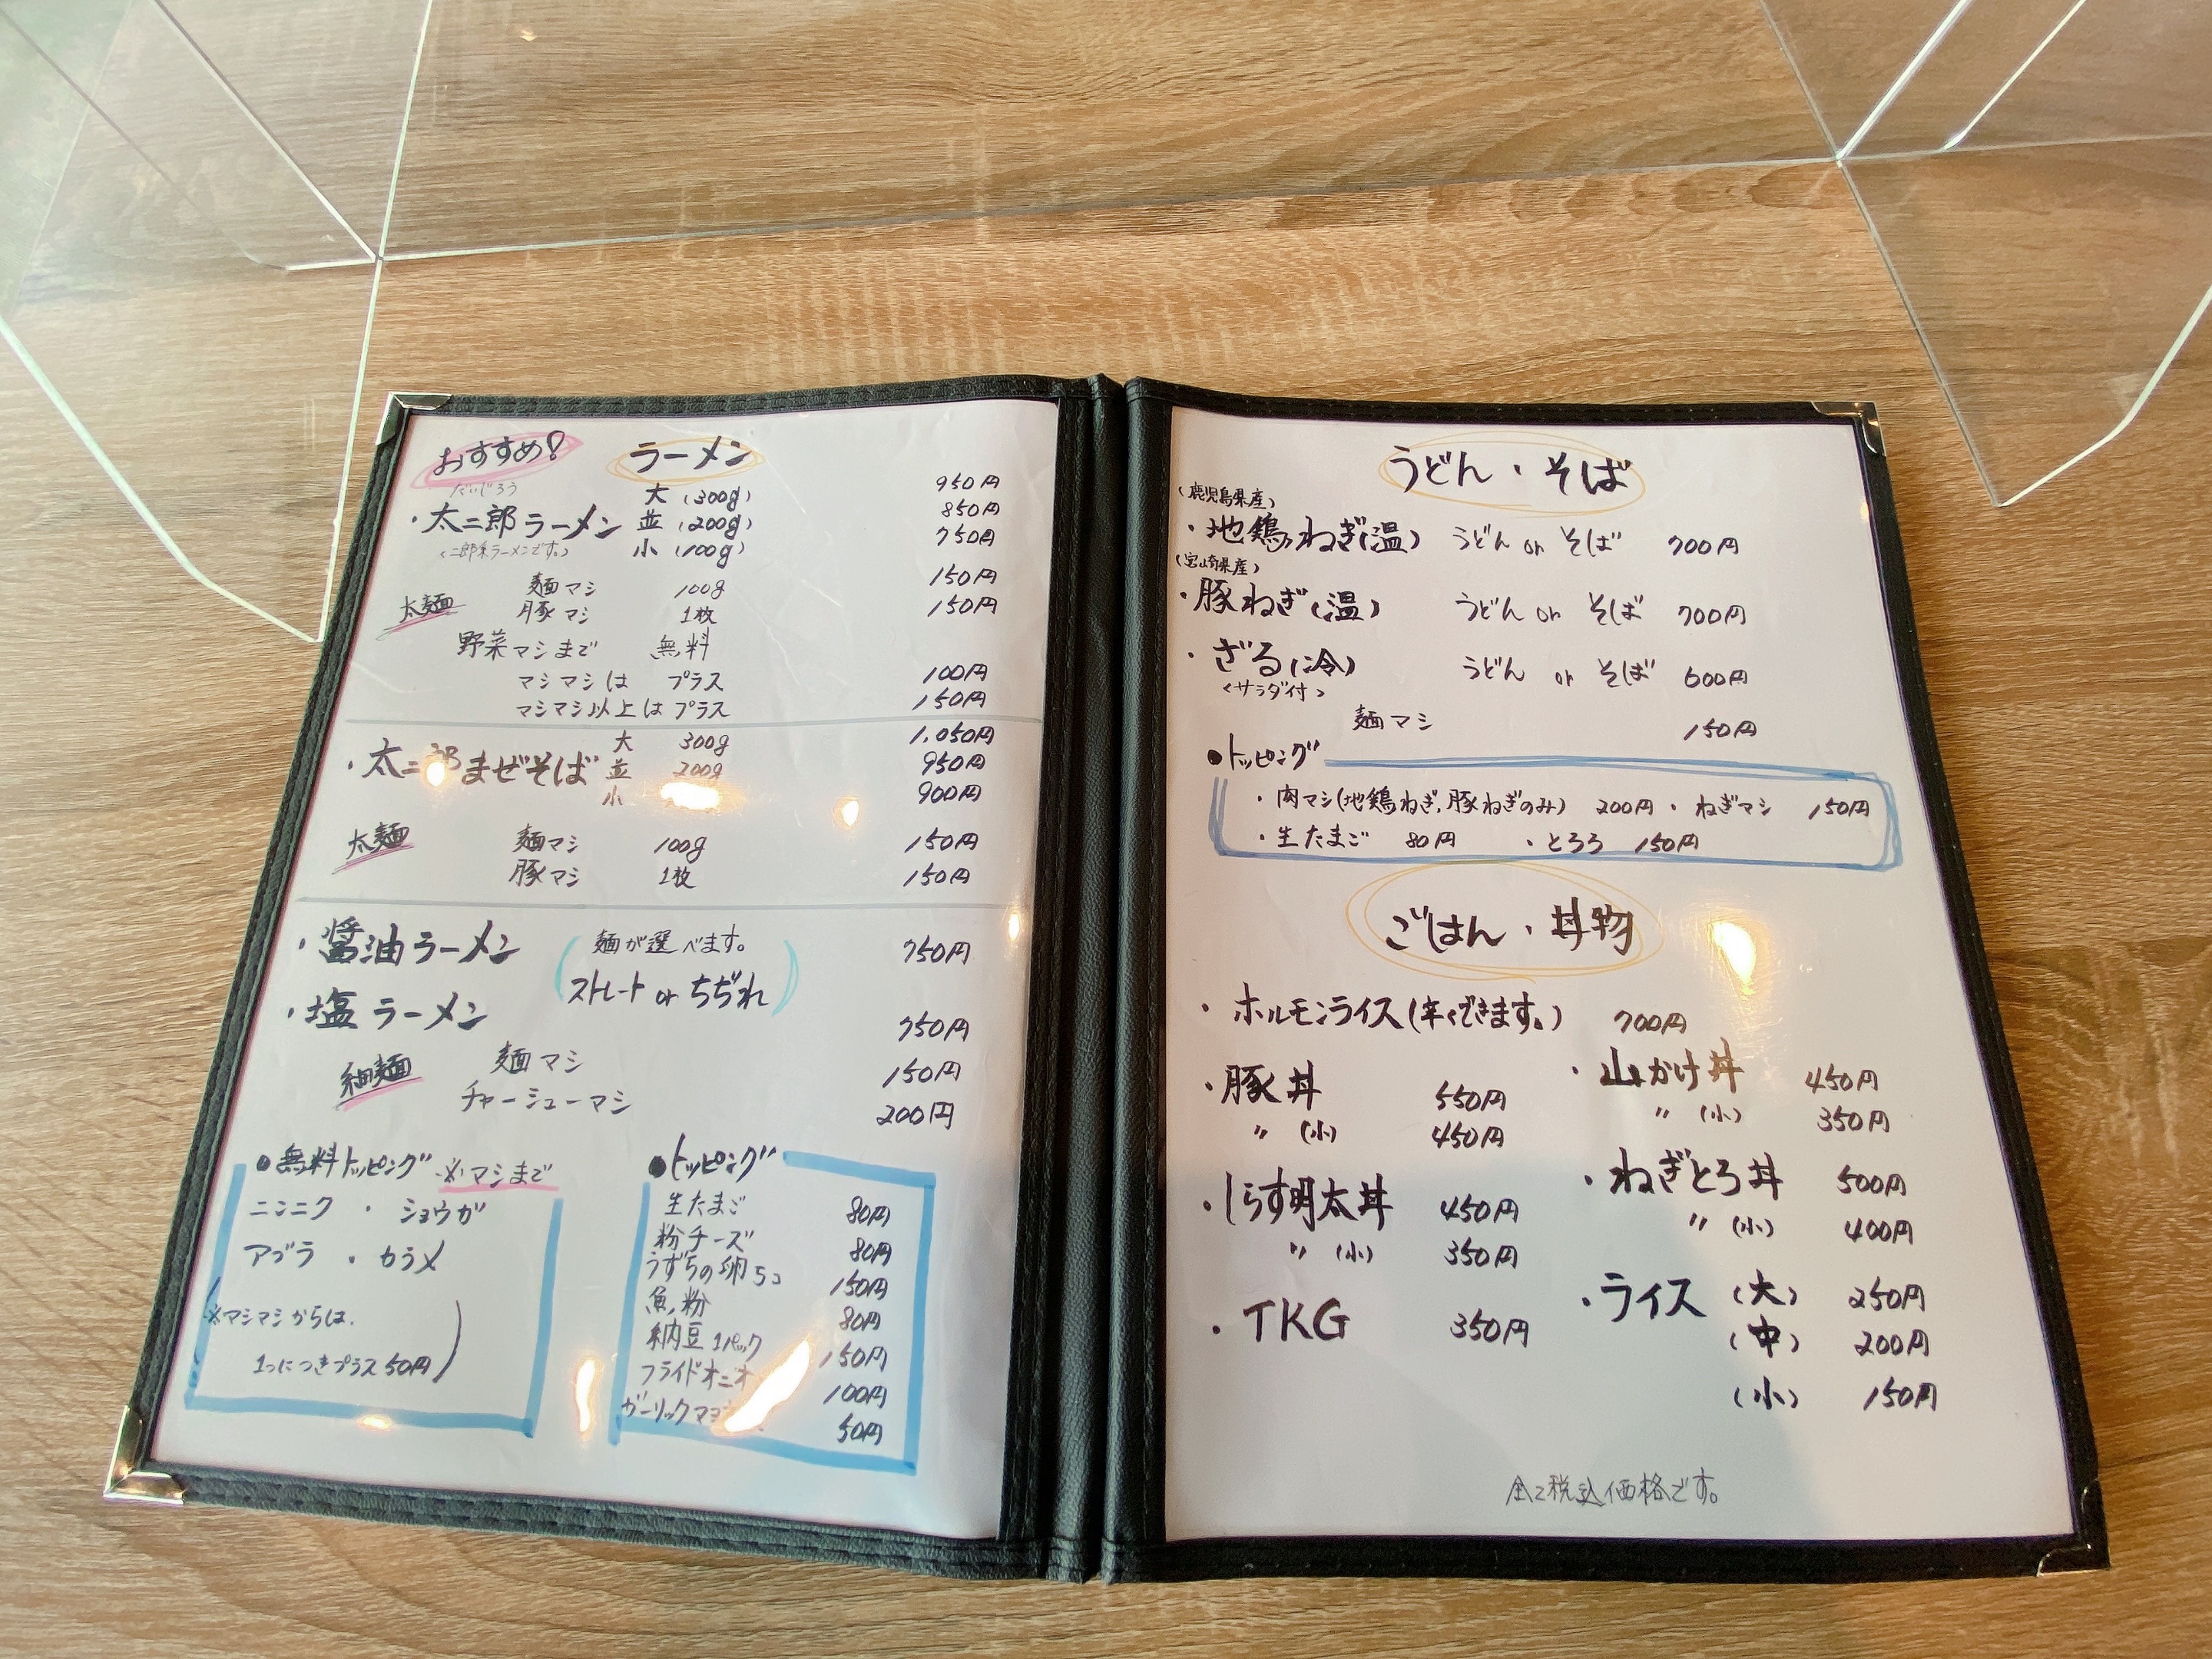 おすすめ!
ラーメン
だいじろう
・太二郎ラーメン 大 (300g) 950円
並 (200g) 850円
(二郎系ラーメンです。) 小 (100g) 750円
太麺 麺マシ 100g 150円
豚マシ 1枚 150円
野菜マシまで 無料
マシマシは プラス 100円
マシマシ以上は プラス 150円
・太二郎まぜそば 大 300g 1,050円
並 200g 950円
小 900円
太麺 麺マシ 100g 150円
豚マシ 1枚 150円
・醤油ラーメン 750円
麺が選べます。
ストレート or ちぢれ
・塩ラーメン 750円
細麺 麺マシ 150円
チャーシューマシ 200円
●無料トッピング ※マシまで
ニンニク ・ ショウガ
アブラ ・ カラメ
※マシマシからは、
1つにつきプラス50円
●トッピング
生たまご 80円
粉チーズ 80円
うずらの卵5コ 150円
魚粉 80円
納豆1パック 150円
フライドオニオ 100円
ガーリックマヨ 50円
うどん・そば
(鹿児島県産)
・地鶏ねぎ(温) うどん or そば 700円
(宮崎県産)
・豚ねぎ(温) うどん or そば 700円
・ざる(冷) うどん or そば 600円
<サラダ付>
麺マシ 150円
●トッピング
・肉マシ(地鶏ねぎ、豚ねぎのみ) 200円 ・ねぎマシ 150円
・生たまご 80円 ・とろろ 150円
ごはん・丼物
・ホルモンライス(辛くできます。) 700円
・豚丼 550円
〃 (小) 450円
・しらす明太丼 450円
〃 (小) 350円
・TKG 350円
・山かけ丼 450円
〃 (小) 350円
・ねぎとろ丼 500円
〃 (小) 400円
・ライス (大) 250円
(中) 200円
(小) 150円
全て税込価格です。